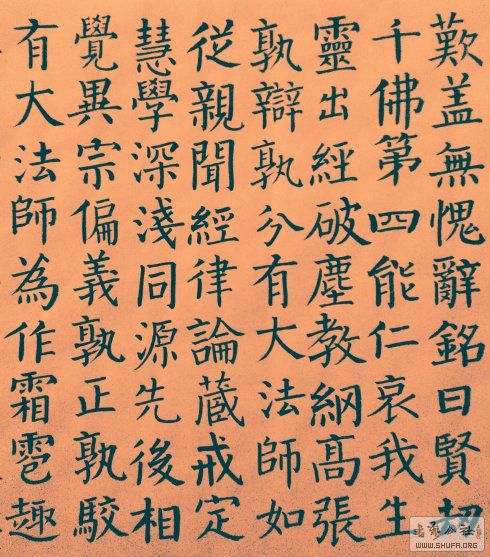 歎盖無愧辭銘曰賢劫
千佛第四能仁哀我生
靈出經破塵教綱髙張
孰辯孰分有大法師如
從親聞經律論蔵戒定
慧學深淺同源先後相
覺異宗偏義孰正孰駮
有大法師為作霜雹趣
WWW.SHUFA.ORG